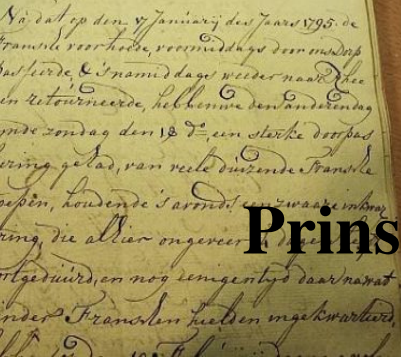 Na dat op den 17 Januarij des Jaars 1795. de
Fransche voorhoede, voormiddags door ons Dorp
passeerde, & 's namiddags weeder naar Rhee
en retourneerde, hebben we den anderendag
zondag den 18 do. een sterke doorpas
gehad, van veele duizende Fransche
houdende 's avonds een zwaare inkwar
ring, die alhier ongeveer dagen heeft
Prins
en nog eenigen tijd daar na wat
Franschen hielden ingekwartierd